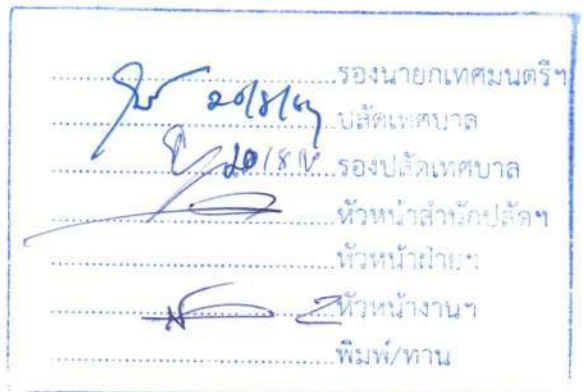 รองนายกเทศมนตรีฯ
ปลัดเทศบาล
รองปลัดเทศบาล
หัวหน้าสำนักปลัดฯ
หัวหน้าฝ่ายฯ
หัวหน้างานฯ
พิมพ์/ทาน